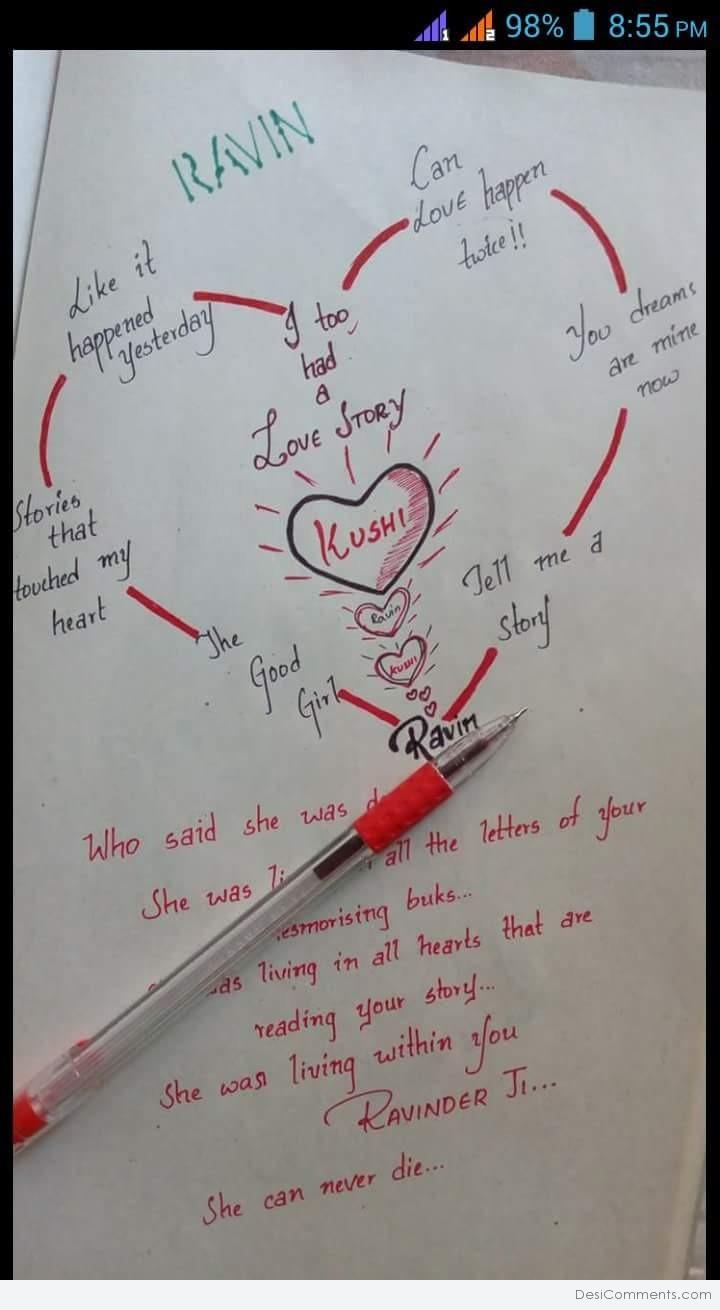 98% 8:55 PM
RAVIN
Can
Love happen
twice!!
Like it
happened
yesterday
I too
had
a
LOVE STORY
You dreams
are mine
now
KUSHI
Stories
that
touched my
heart
Tell me a
story
Ravin
The
Good
Girl
KUSHI
Ravin
Who said she was
She was all the letters of your
buks...
living in all hearts that are
reading your story...
She was living within you
RAVINDER JI...
She can never die...
DesiComments.com